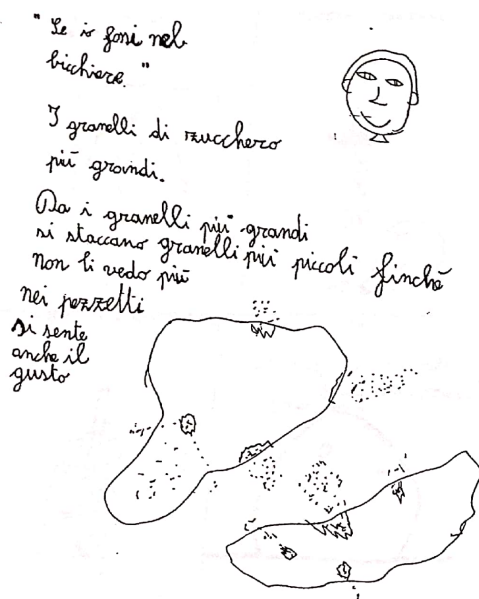 "Se io fossi nel
bicchiere."
I granelli di zucchero
più grandi.
Da i granelli più grandi
si staccano granelli più piccoli finchè
non li vedo più
nei pezzetti
si sente
anche il
gusto